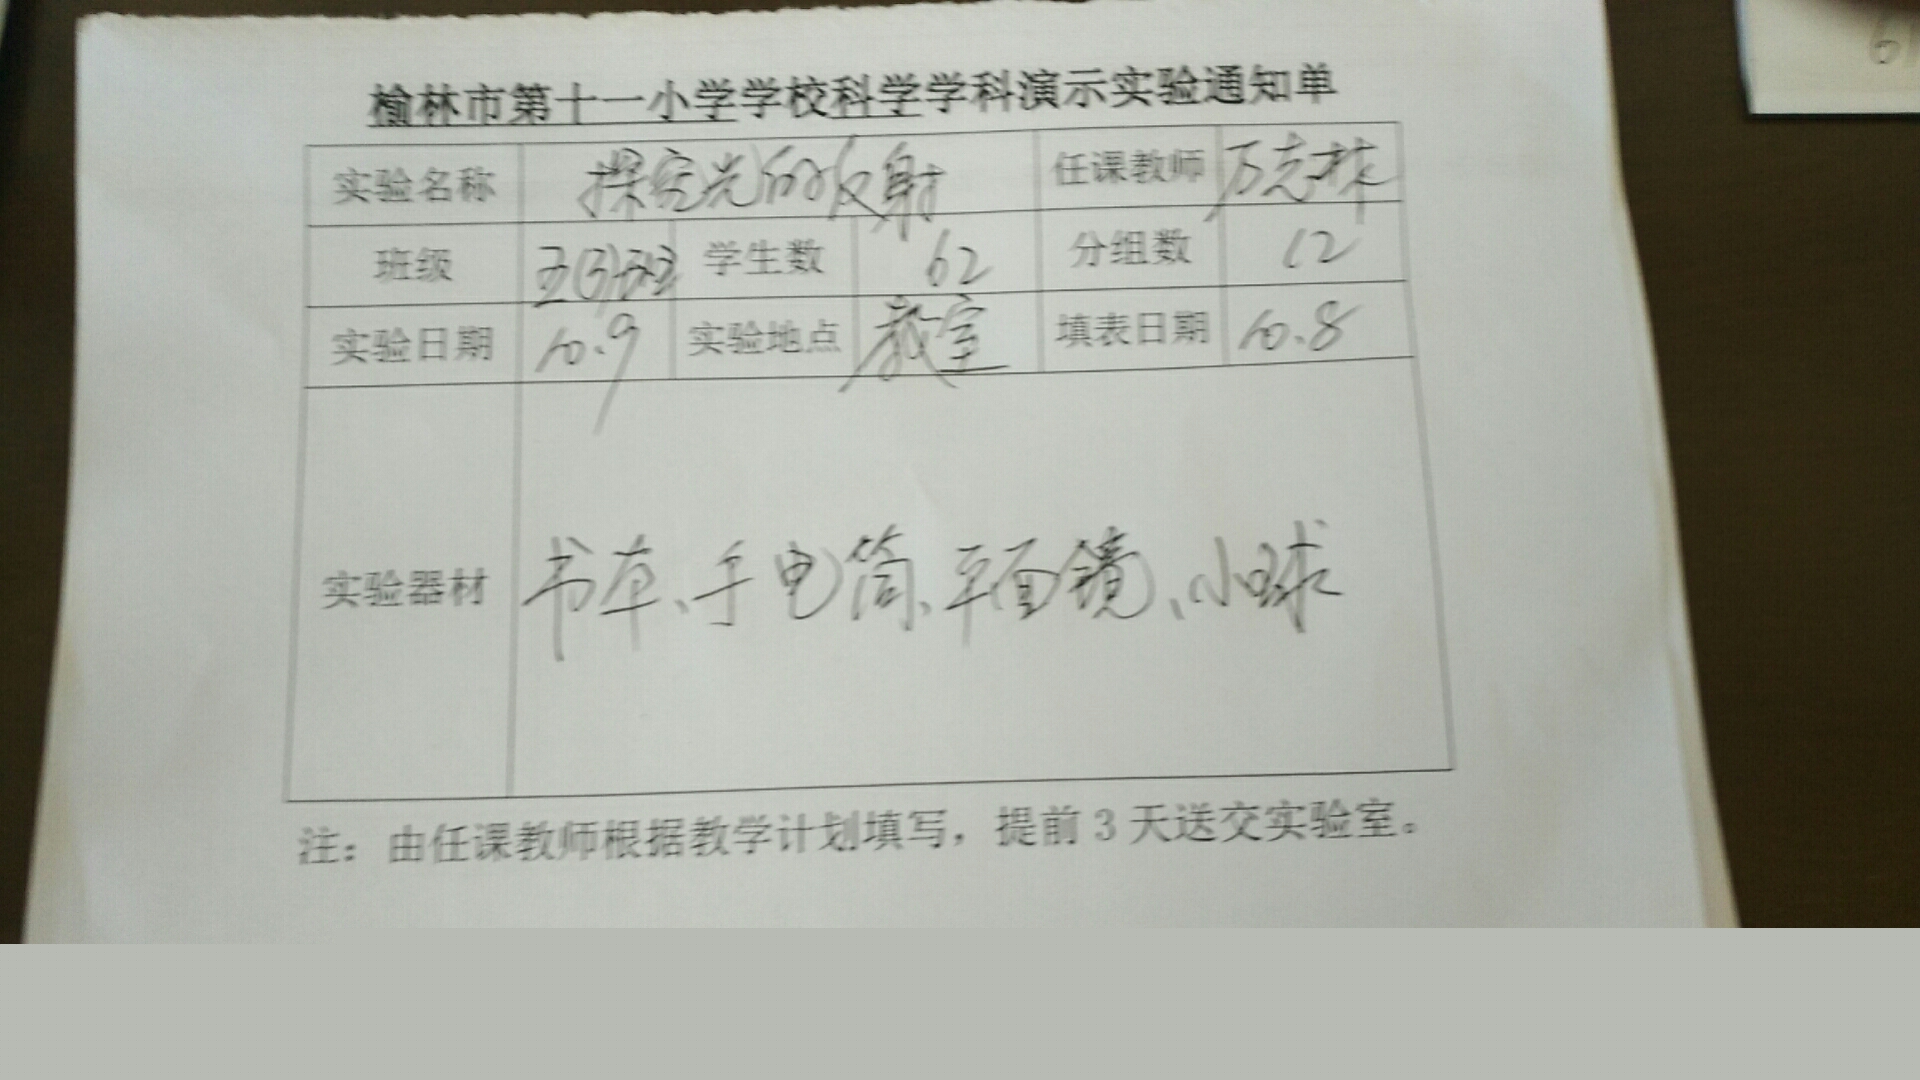 榆林市第十一小学学校科学学科演示实验通知单
实验名称 探究光的反射 任课教师 万志林
班级 五(3)班 学生数 62 分组数 12
实验日期 10.9 实验地点 教室 填表日期 10.8
实验器材 书本、手电筒、平面镜、小球
注：由任课教师根据教学计划填写，提前3天送交实验室。